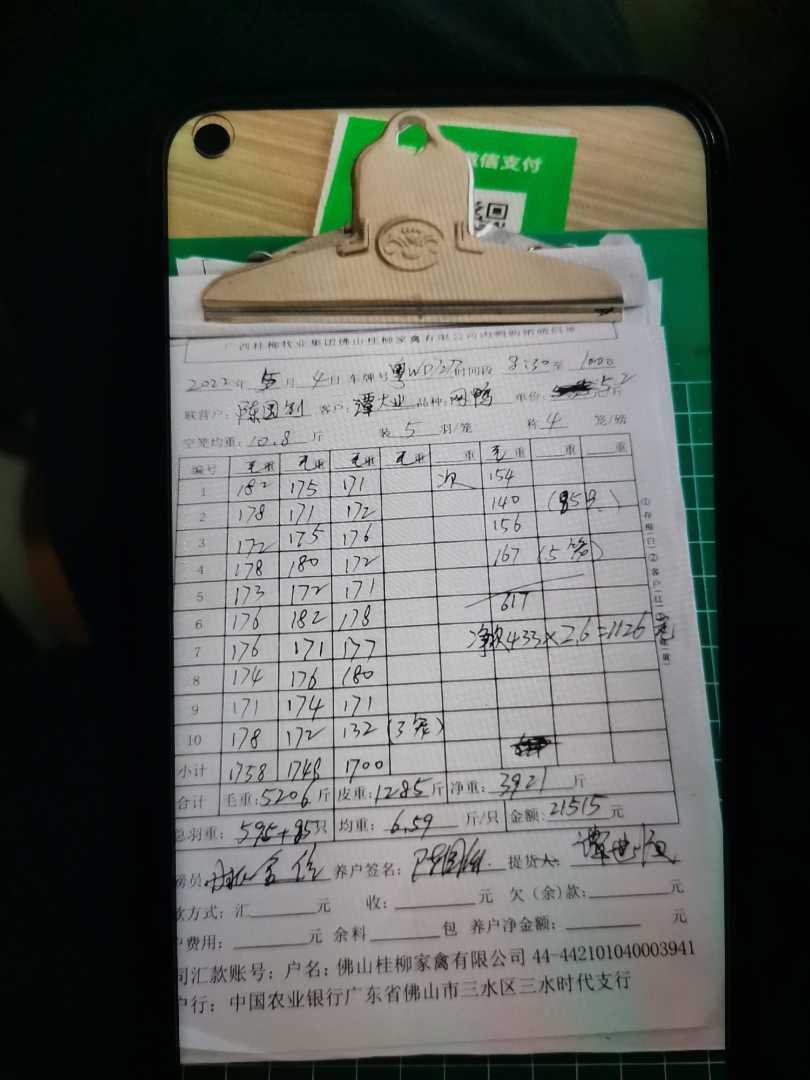 微信支付
广西桂柳牧业集团佛山桂柳家禽有限公司肉鸭购销磅码单
2022年 5月 4日 车牌号 粤WD 时间段 8:30至 1000
联营户: 陈国剑 客户: 谭大业 品种: 网鸭 单价: 5.2元/斤
空笼均重: 10.8 斤 装 5 羽/笼 称 4 笼/磅
编号 毛重 毛重 毛重 毛重 重 毛重 重 重
1 182 175 171 次 154
2 178 171 172 140 (85只)
3 172 175 176 156
4 178 180 172 167 (5笼)
5 173 172 171
6 176 182 178 617
7 176 171 177 净次433×2.6=1126元
8 174 176 180
9 171 174 171
10 178 172 132 (3笼)
小计 1758 1748 1700
合计 毛重: 5206 斤 皮重: 1285 斤 净重: 3921 斤
总羽重: 595+85只 均重: 6.59 斤/只 金额: 21515 元
磅员 养户签名: 提货人:
款方式: 汇 元 收: 元 欠(余)款: 元
户费用: 元 余料 包 养户净金额: 元
司汇款账号: 户名: 佛山桂柳家禽有限公司 44-442101040003941
户行: 中国农业银行广东省佛山市三水区三水时代支行
①存根(白)②客户(红)